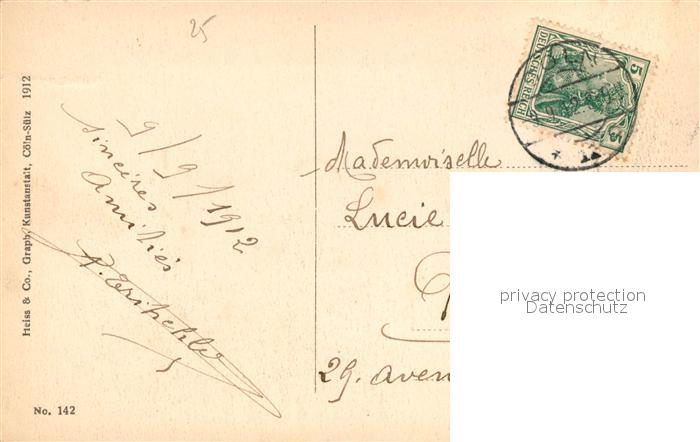 25
Heiss & Co., Graph. Kunstanstalt, Cöln-Sülz 1912
9/9/1912
sincères
amitiés
No. 142
5 5
DEUTSCHES REICH
Mademoiselle
Lucie
29. aven
privacy protection
Datenschutz